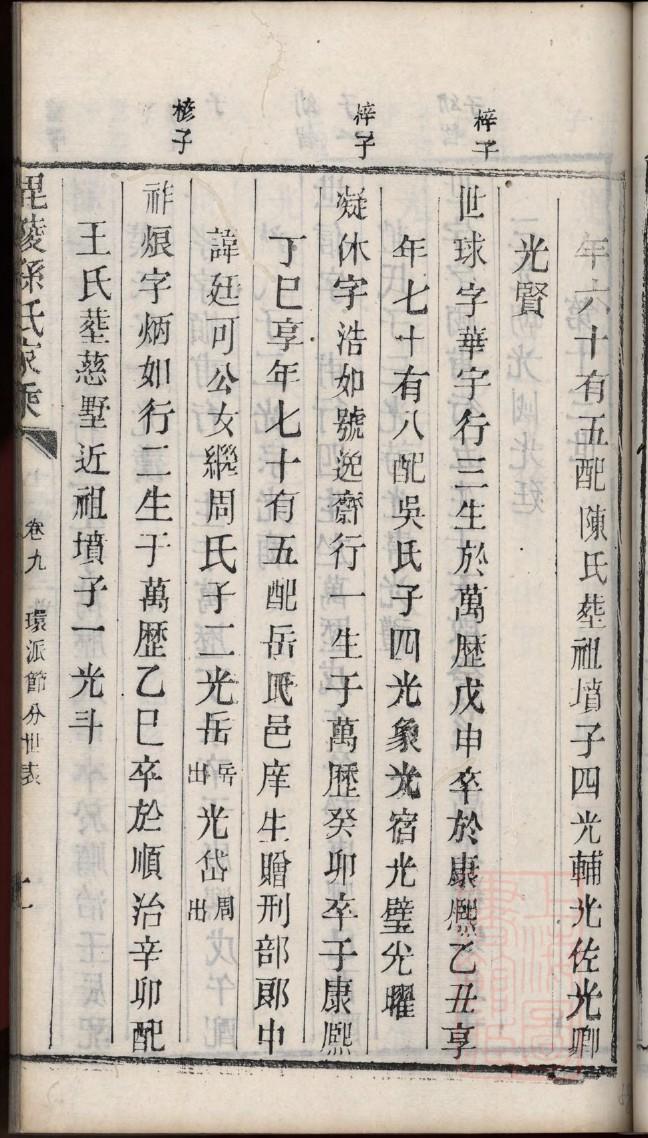 年六十有五配陳氏塟祖墳子四光輔光佐光卿
光賢
梓子
世球字華宇行三生於萬歷戊申卒於康熙乙丑享
年七十有八配吳氏子四光象光宿光璧光曜
梓子
凝休字浩如號逸齋行一生于萬歷癸卯卒于康熙
丁巳享年七十有五配岳氏邑庠生贈刑部郎中
諱廷可公女繼周氏子二光岳岳出光岱周出
椮子
祚烺字炳如行二生于萬歷乙巳卒於順治辛卯配
王氏塟慈墅近祖墳子一光斗
毘陵孫氏家乘
卷九
環派節分世表